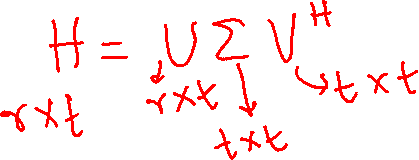 H = U Σ V^H
r×t r×t t×t
t×t